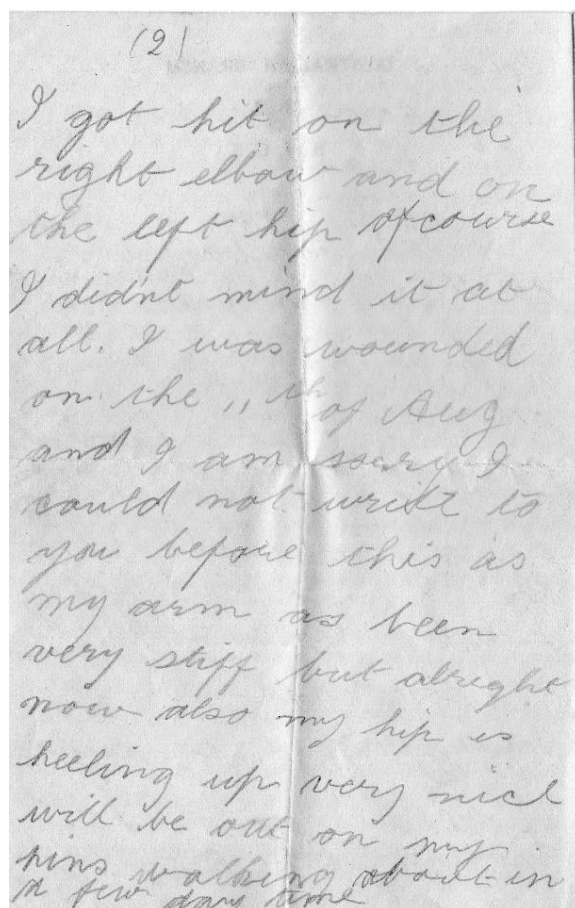 (2)
I got hit on the
right elbow and on
the left hip of course
I didnt mind it at
all. I was wounded
on the 11th of Aug
and I am sorry I
could not write to
you before this as
my arm as been
very stiff but alright
now also my hip is
heeling up very nice
will be out on my
pins walking about in
a few days time